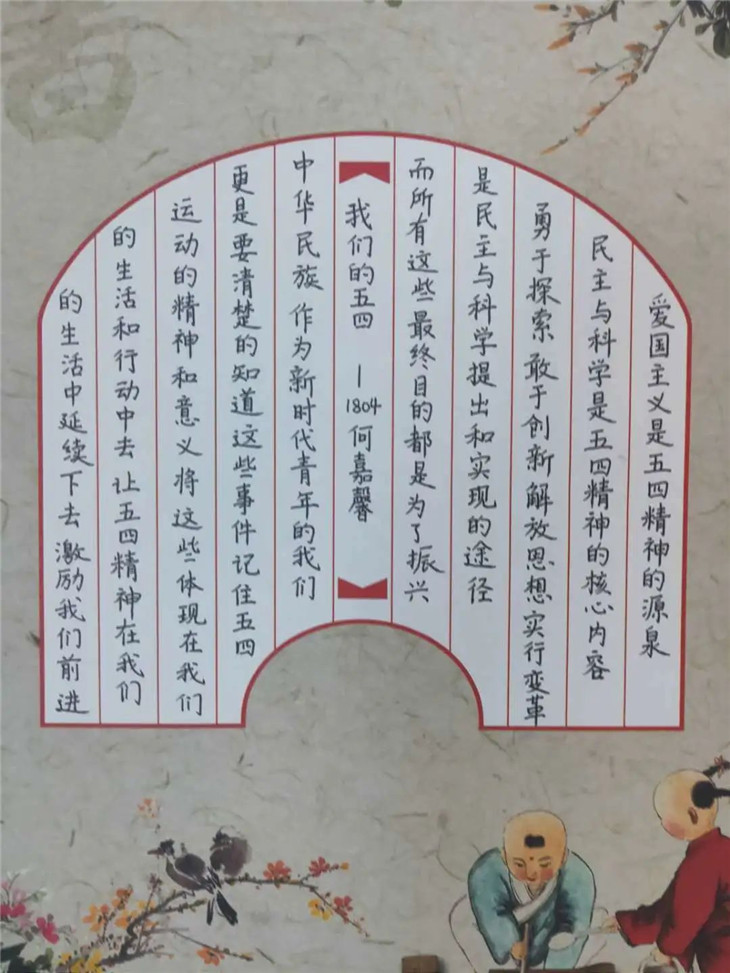 爱国主义是五四精神的源泉
民主与科学是五四精神的核心内容
勇于探索 敢于创新 解放思想 实行变革
是民主与科学提出和实现的途径
而所有这些最终目的都是为了振兴
我们的五四 — 1804 何嘉馨
中华民族 作为新时代青年的我们
更是要清楚的知道这些事件记住五四
运动的精神和意义 将这些体现在我们
的生活和行动中去 让五四精神在我们
的生活中延续下去 激励我们前进